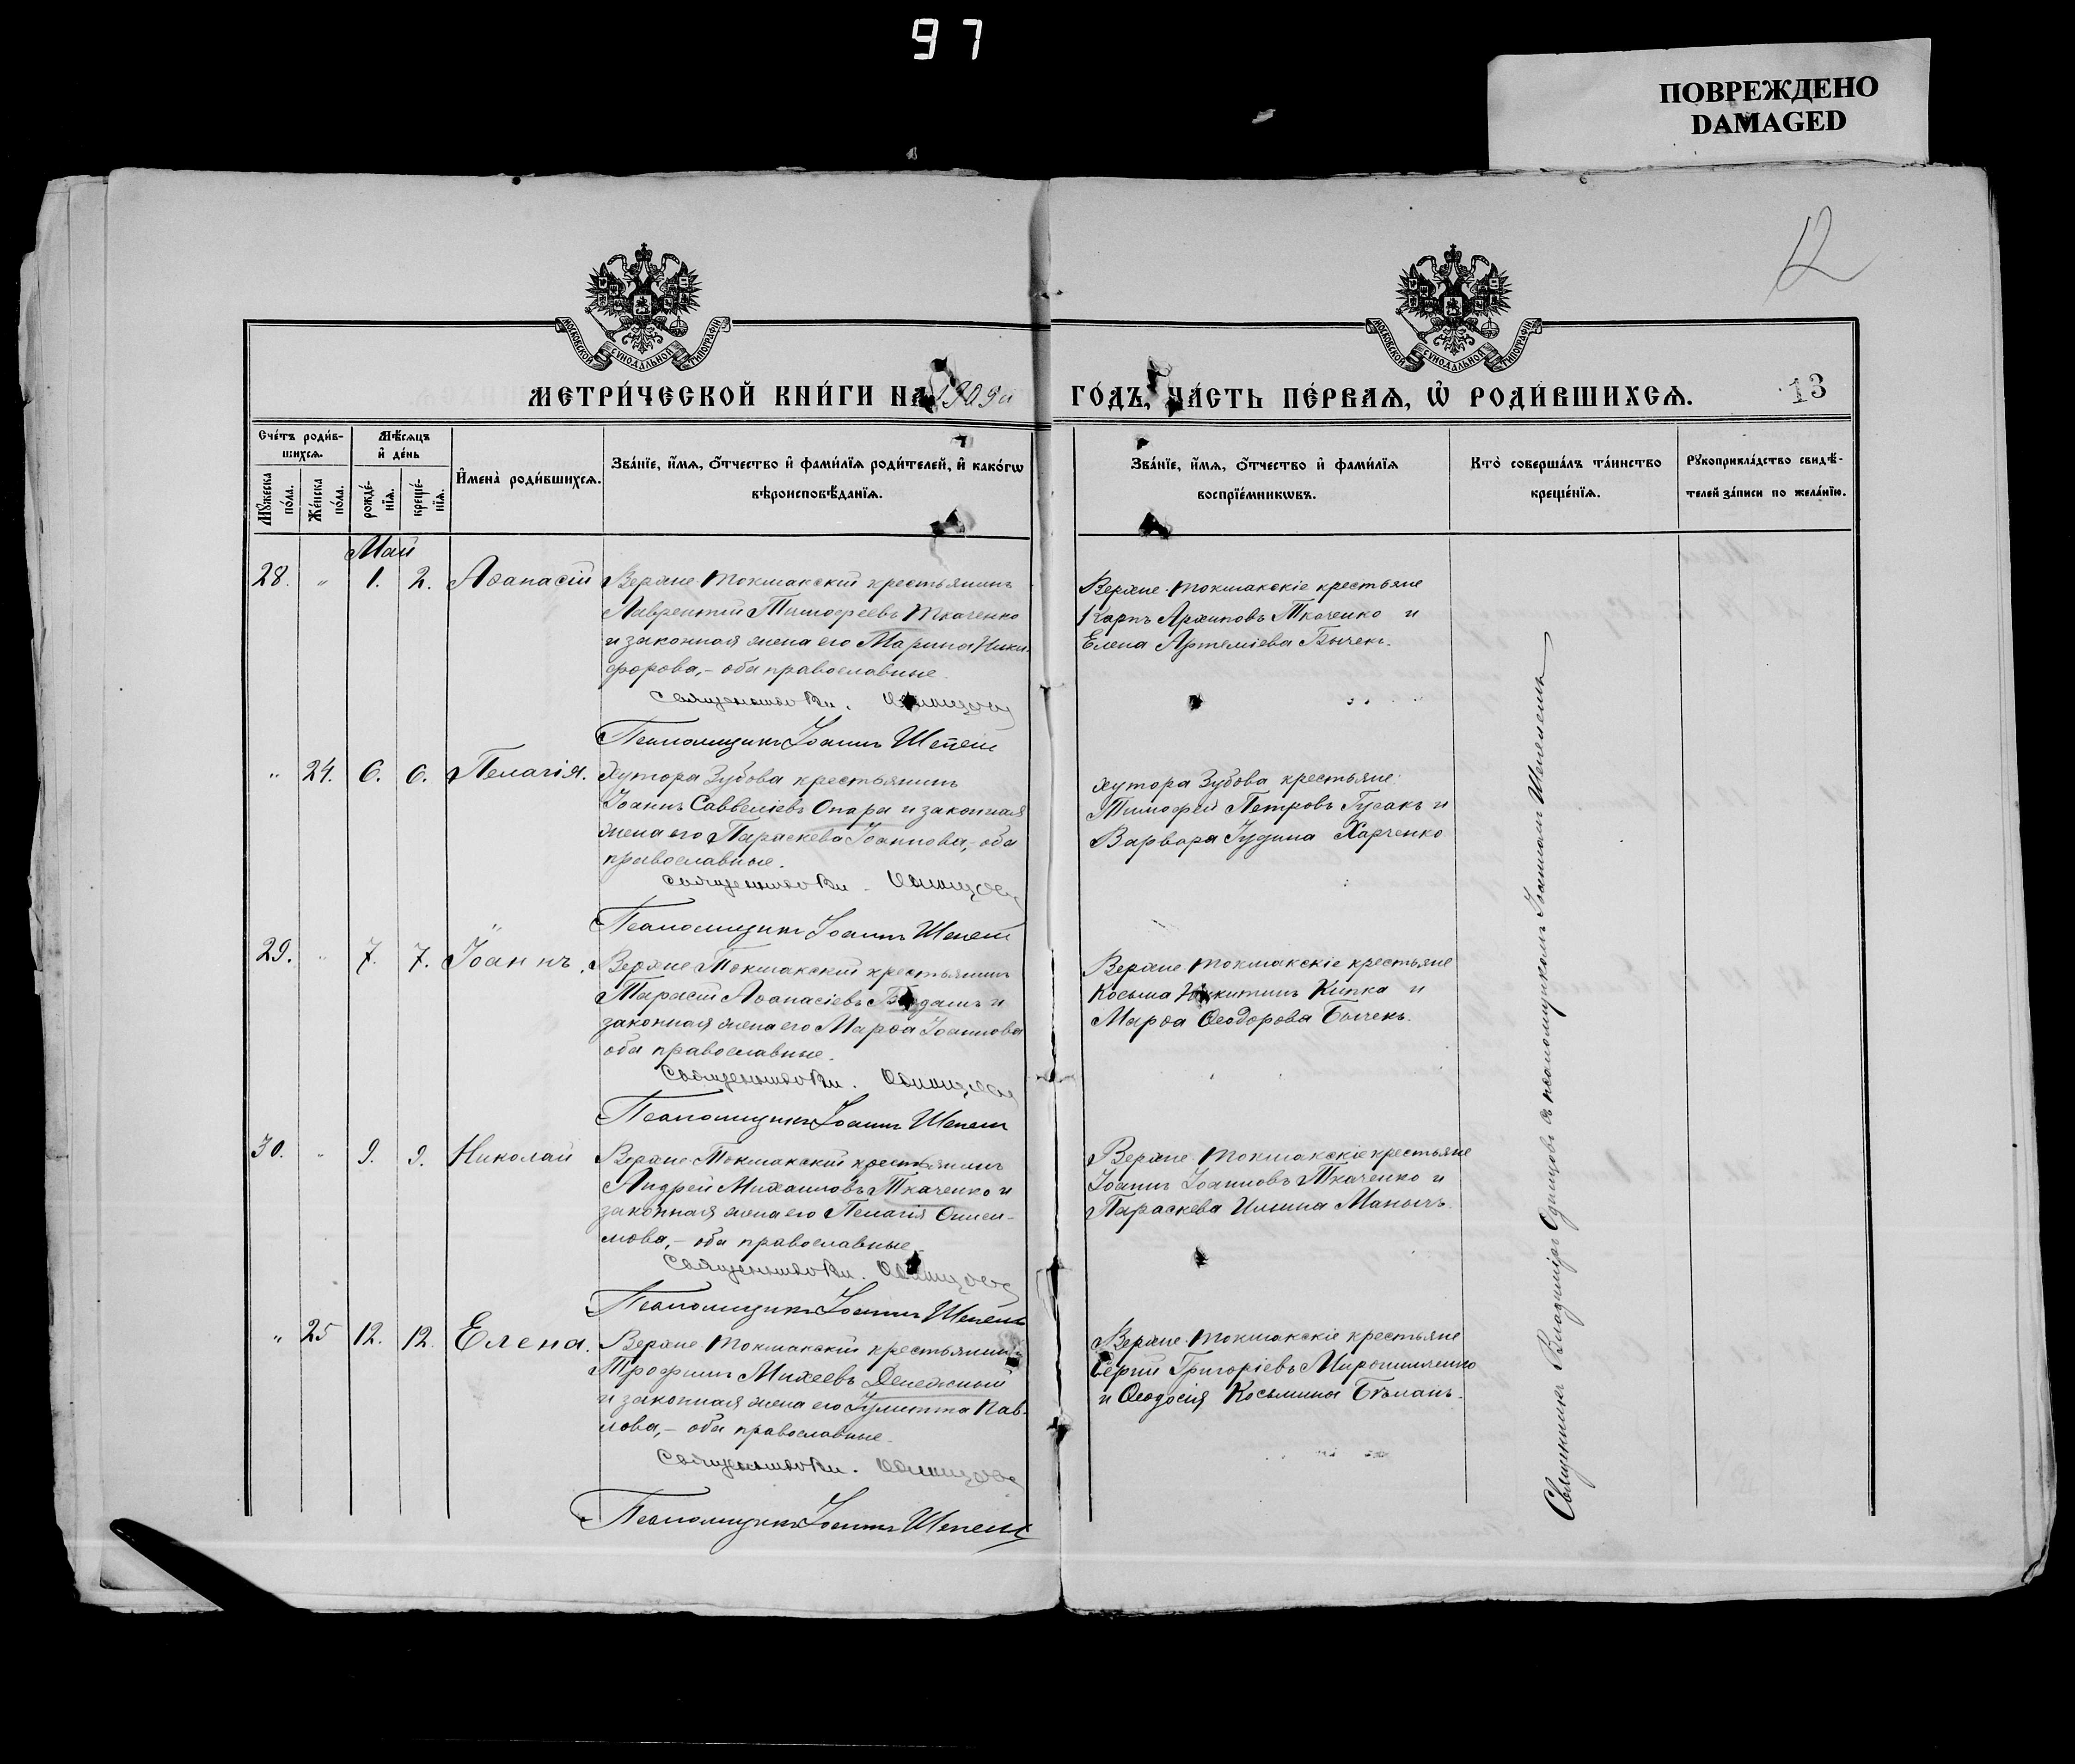 97
ПОВРЕЖДЕНО
DAMAGED
12
МОСКОВСКОЙ СУНОДАЛЬНОЙ ТИПОГРАФІИ
МОСКОВСКОЙ СУНОДАЛЬНОЙ ТИПОГРАФІИ
МЕТРИ́ЧЕСКОЙ КНИ́ГИ НА 1909й
ГО́ДЪ, ЧА́СТЬ ПЕ́РВАѦ, Ѡ҆ РОДИ́ВШИХСѦ.
13
Сче́тъ роди́в-
шихсѧ.
Мѣ́сѧцъ
и҆ де́нь
Мꙋжеска
по́ла.
Же́нска
по́ла.
рожде́-
нїѧ.
креще́-
нїѧ.
И҆мена̀ роди́вшихсѧ.
Зва́нїе, и҆́мѧ, ѻ҆́тчество и҆ фами́лїѧ роди́телей, и҆ како́гѡ
вѣроисповѣ́данїѧ.
Зва́нїе, и҆́мѧ, ѻ҆́тчество и҆ фами́лїѧ
воспрїе́мникѡвъ.
Кто̀ соверша́лъ та́инство
креще́нїѧ.
Рꙋкоприкла́дство свидѣ́-
телей за́писи по жела́нїю.
Май
28. " 1. 2. Аѳанасій
Верхне-Токмакскій крестьянинъ
Лаврентій Тимофеевъ Ткаченко
и законная жена его Марина Ники-
форова,- оба православные.
Священникъ Вл. Одинцовъ
Псаломщикъ Іоаннъ Шепель
Верхне-Токмакскіе крестьяне
Карпъ Архиповъ Ткаченко и
Елена Артеміева Бычекъ.
" 24. 6. 6. Пелагія.
Хутора Зубова крестьянинъ
Іоаннъ Саввеліевъ Опара и законная
жена его Параскева Іоаннова,- оба
православные.
Священникъ Вл. Одинцовъ
Псаломщикъ Іоаннъ Шепель
Хутора Зубова крестьяне:
Тимофей Петровъ Гусакъ и
Варвара Іудина Харченко
29. " 7. 7. Іоаннъ.
Верхне-Токмакскій крестьянинъ
Тарасій Аѳанасіевъ и
законная жена его Марѳа Іоаннова
оба православные.
Священникъ Вл. Одинцовъ
Псаломщикъ Іоаннъ Шепель
Верхне-Токмакскіе крестьяне
Косьма Никитинъ Кипка и
Марѳа Ѳеодорова Бычекъ.
30. " 9. 9. Николай
Верхне-Токмакскій крестьянинъ
Андрей Михаиловъ Ткаченко и
законная жена его Пелагія Ониси-
мова,- оба православные.
Священникъ Вл. Одинцовъ
Псаломщикъ Іоаннъ Шепель
Верхне-Токмакскіе крестьяне
Іоаннъ Іоанновъ Ткаченко и
Параскева Ильина Манычъ.
" 25 12. 12. Елена.
Верхне-Токмакскій крестьянинъ
Трофимъ Михеевъ Денежный
и законная жена его Іулитта Пав-
лова,- оба православные.
Священникъ Вл. Одинцовъ
Псаломщикъ Іоаннъ Шепель
Верхне-Токмакскіе крестьяне
Сергій Григоріевъ Мирошниченко
и Ѳеодосія Косьмина Бѣланъ.
Священникъ Владиміръ Одинцовъ съ псаломщикомъ Іоанномъ Шепелемъ